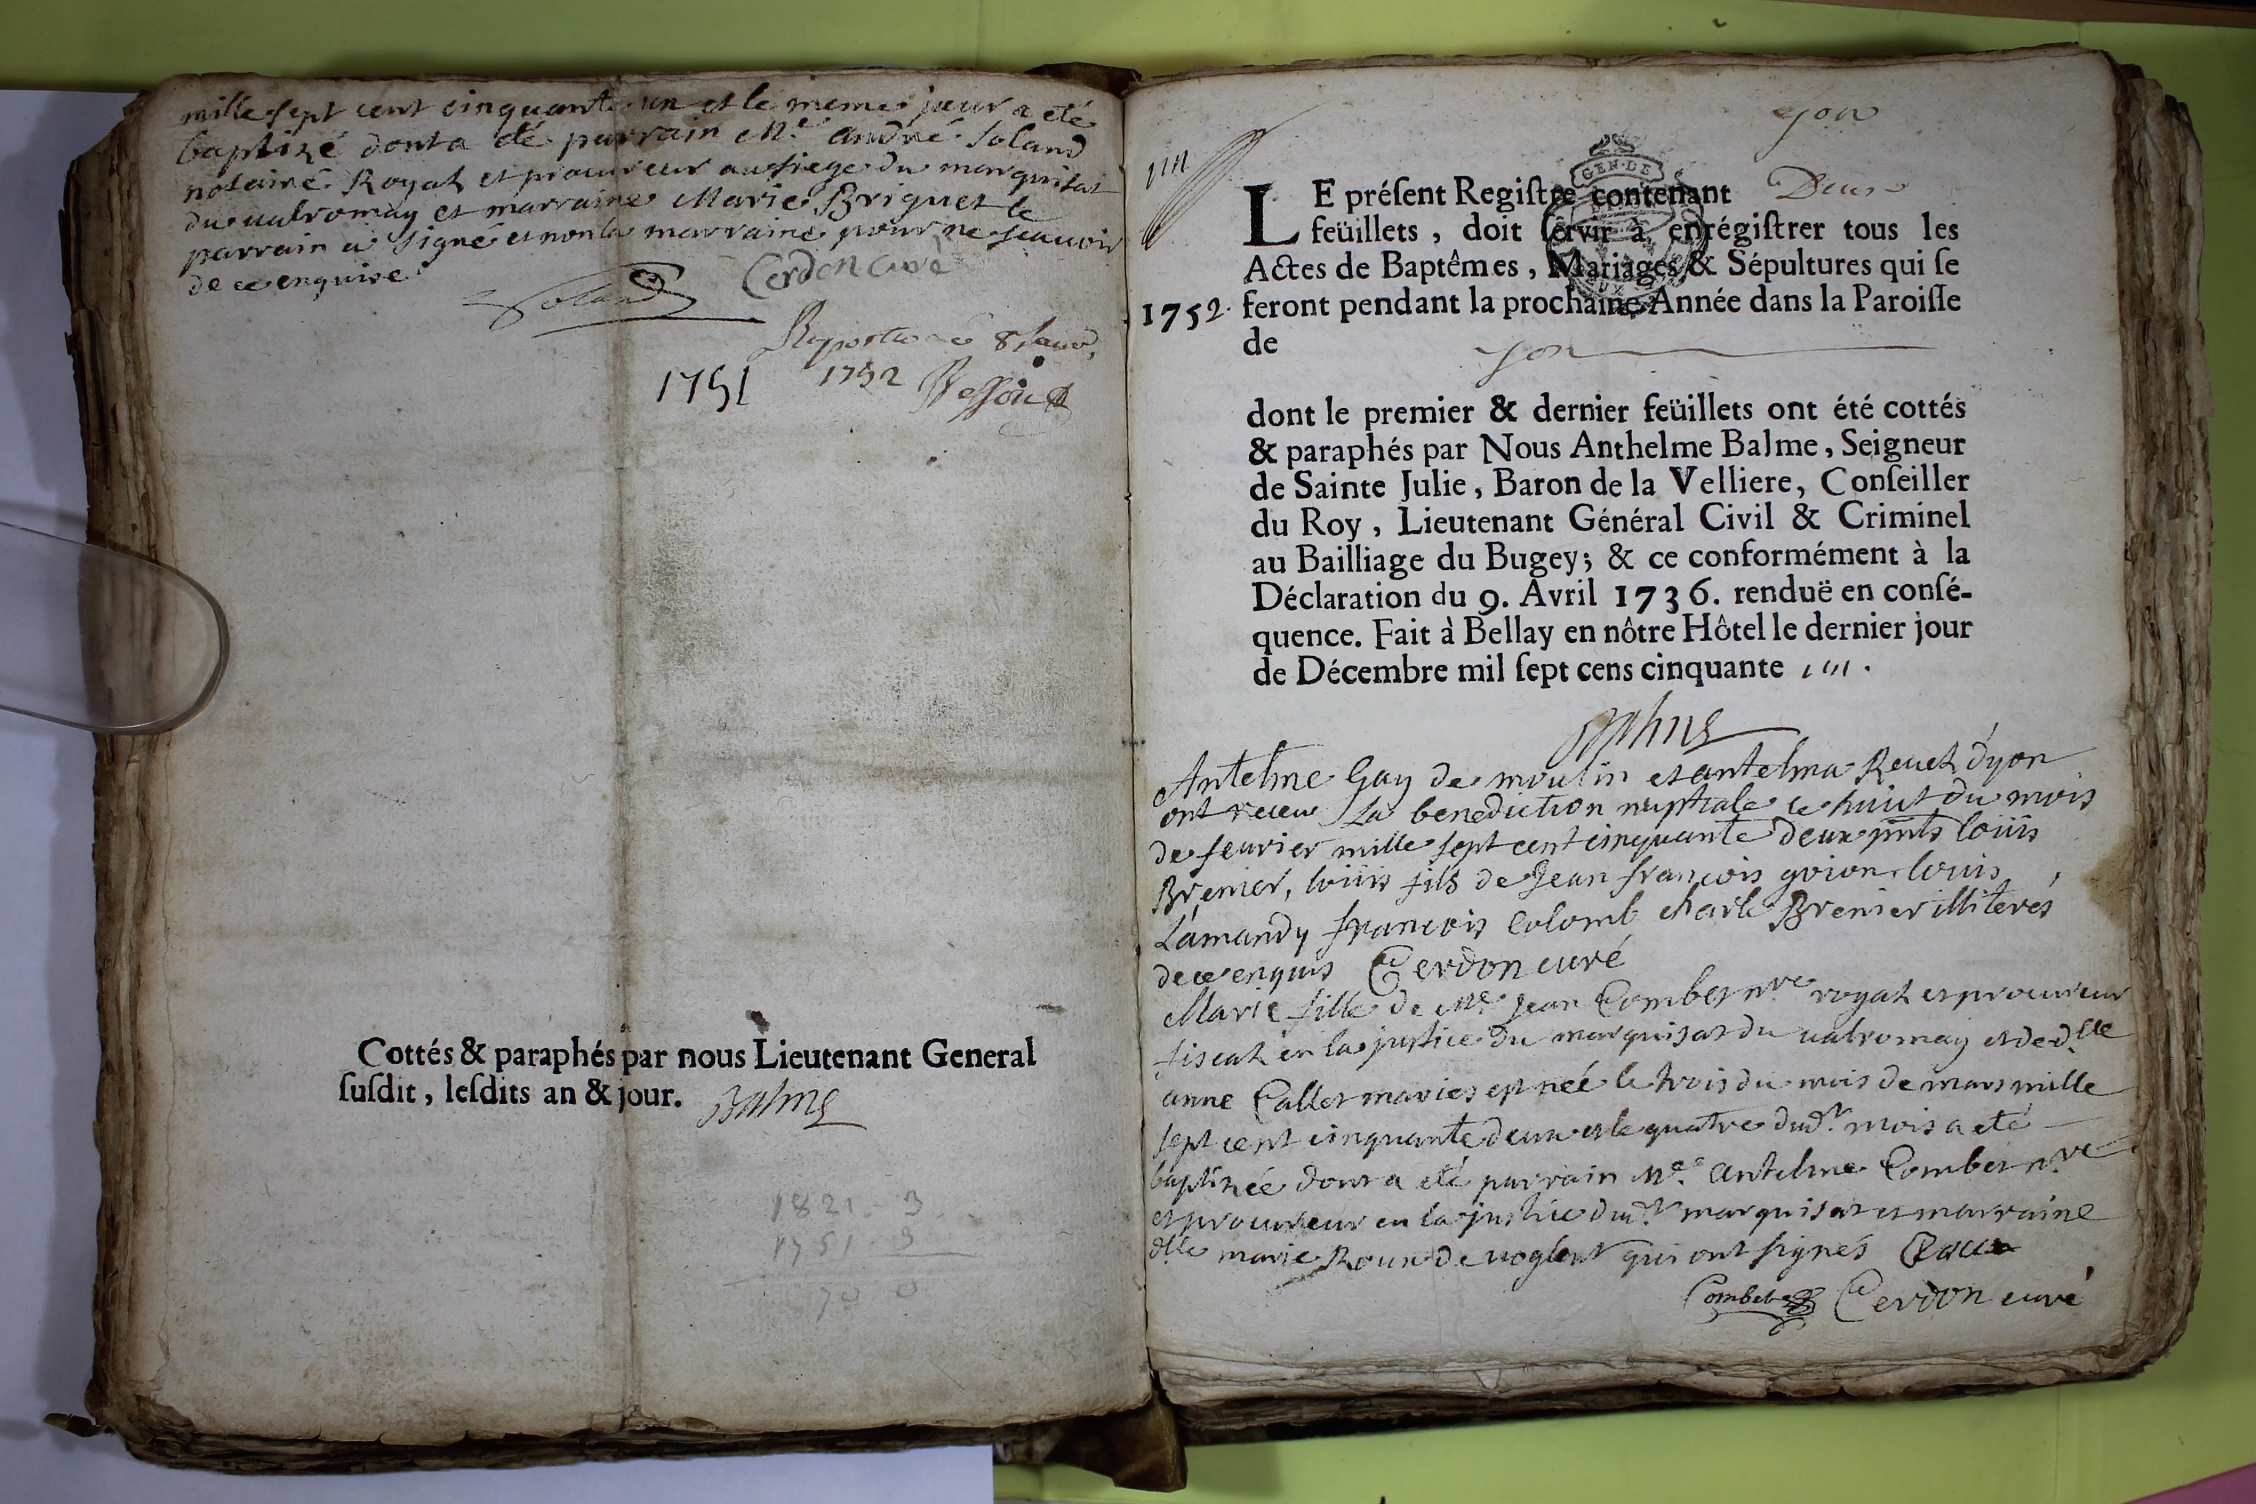 mille sept cent cinquante un et le meme jour a eté
baptizé dont a eté parrain Me. andré Soland
notaire Royal et procureur au siege du marquisat
du valromay et marraine Marie Briguet le
parrain a signé et non la marraine pour ne scauoir
de ce enquise
Soland
Cerdon curé
8
1751
1752
Cottés & paraphés par nous Lieutenant General
ſuſdit, leſdits an & jour. Balme
1821 - 3
1751 - 3
70 0
yon
un
LE préſent Regiſtre contenant Deux
feüillets, doit ſervir à enrégiſtrer tous les
Actes de Baptêmes, Mariages & Sépultures qui ſe
1752. feront pendant la prochaine Année dans la Paroiſſe
de yon
GEN. DE
dont le premier & dernier feüillets ont été cottés
& paraphés par Nous Anthelme Balme, Seigneur
de Sainte Julie, Baron de la Velliere, Conſeiller
du Roy, Lieutenant Général Civil & Criminel
au Bailliage du Bugey; & ce conformément à la
Déclaration du 9. Avril 1736. renduë en conſé-
quence. Fait à Bellay en nôtre Hôtel le dernier jour
de Décembre mil ſept cens cinquante un.
Balme
Antelme Gay de moulin et antelma Reuet d'yon
ont receu La benediction nuptiale le huict du mois
de feurier mille sept cent cinquante deux pnts loüis
Brenier, loüis fils de Jean françois guion, louis
Lamandy françois Colomb charle Brenier illiterés
de ce enquis Cerdon curé
Marie fille de Me Jean Combet nre royal et procureur
fiscal en la justice du marquisat du valromay et de dlle
anne Callet mariés est née le trois du mois de mars mille
sept cent cinquante deux et le quatre dudt mois a eté
baptizée dont a eté parrain Me. antelme Combet nre
et procureur en la justice dudt marquisat et marraine
dlle marie Roux de uoglent qui ont signés Roux
Combet Cerdon curé